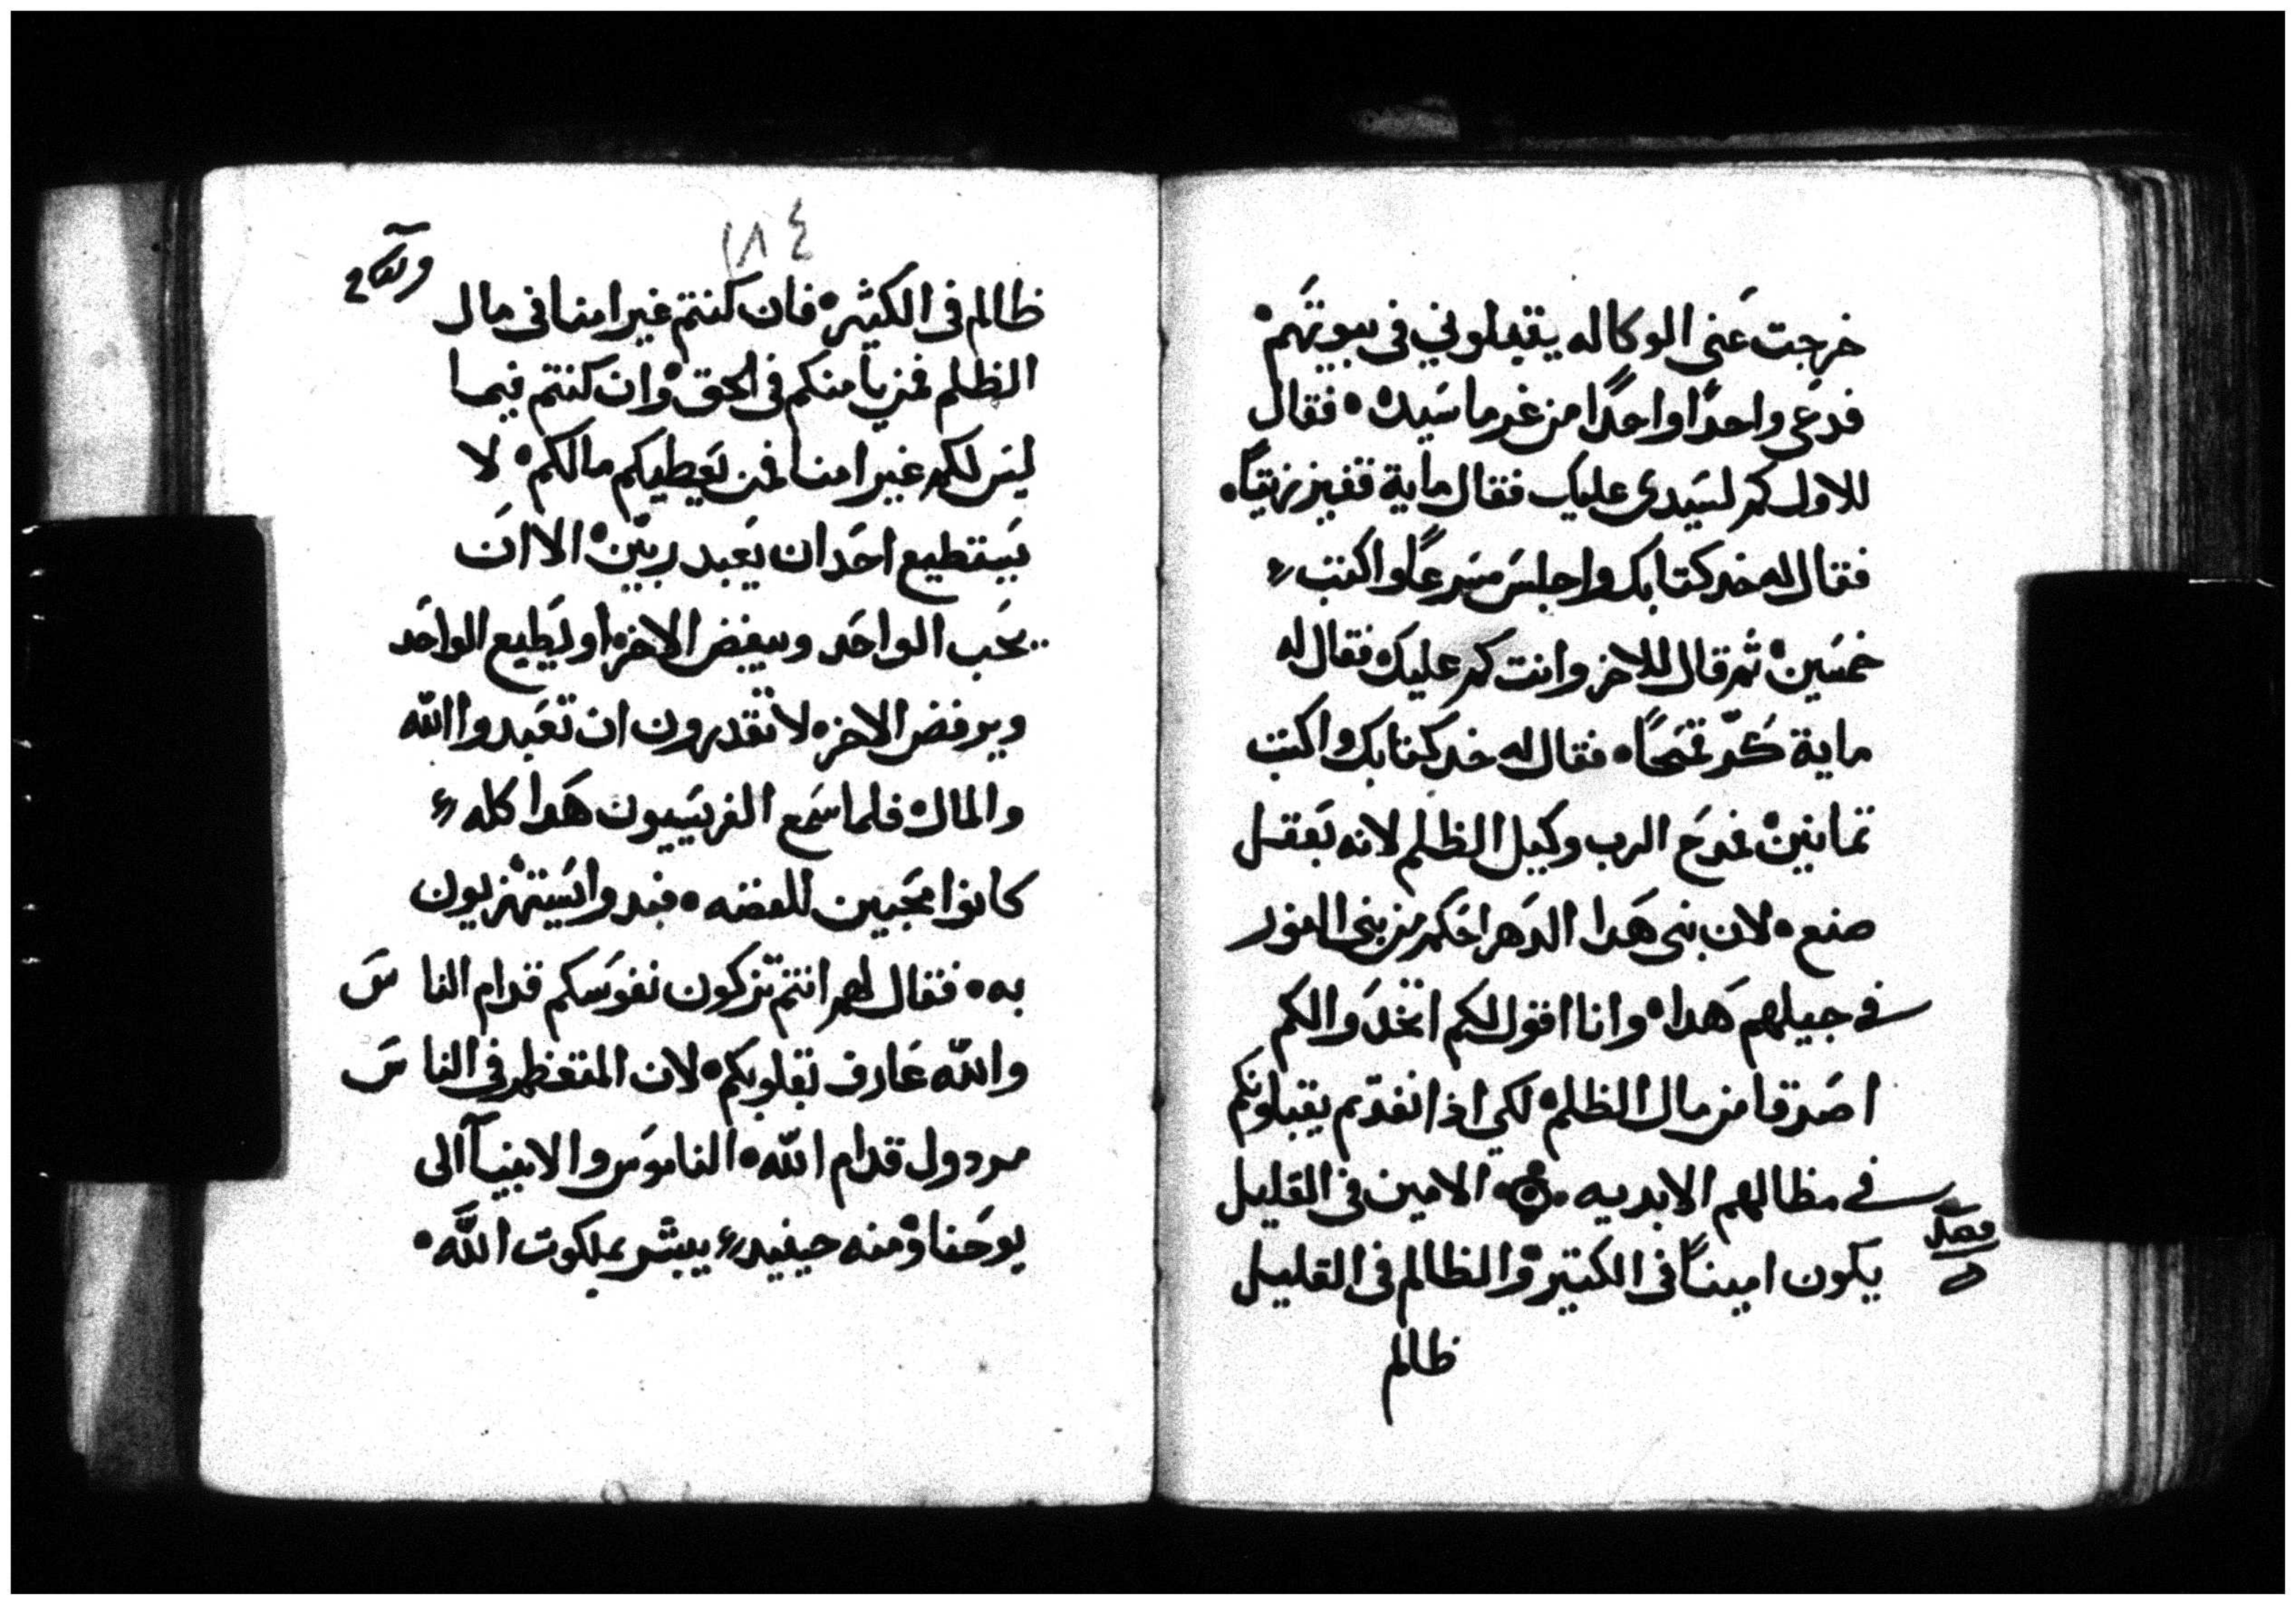 خرجت عنى الوكاله يقبلوني في بيوتهم
فدعى واحدًا واحدًا من غرما سيده فقال
للاول كم لسيدى عليك فقال ماية قفيز زيتًا
فقال له خد كتابك واجلس مسرعًا واكتب
خمسين ثم قال للاخر وانت كم عليك فقال له
ماية كرّ قمحًا فقال له خد كتابك واكتب
تمانين فمدح الرب وكيل الظلم لانه بعقل
صنع لان بنى هدا الدهر احكم من بنى النور
في جيلهم هدا وانا اقول لكم اتخدوا لكم
اصدقا من مال الظلم لكي اذا نفدتم يقبلونكم
في مظالهم الابديه الامين في القليل
فصل
يكون امينًا في الكتير والظالم في القليل
ظالم
١٨٤
ظالم في الكثير فان كنتم غير امنا في مال
الظلم فمن يامنكم في الحق وان كنتم فيما
ليس لكم غير امنا فمن يعطيكم مالكم لا
يستطيع احد ان يعبد ربين الا ان
يحب الواحد ويبغض الاخر او يطيع الواحد
ويرفض الاخر لا تقدرون ان تعبدوا الله
والمال فلما سمع الفريسيون هدا كله
كانوا محبين للفضه فبدوا يستهزيون
به فقال لهم انتم تزكون نفوسكم قدام الناس
والله عارف بقلوبكم لان المتعظم في الناس
مردول قدام الله الناموس والانبيآ الى
يوحنا ومنه حينيد يبشر بملكوت الله